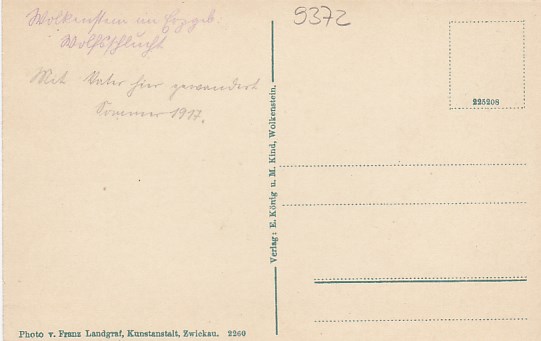 Wolkenstein im Erzgeb.
Wolfsschlucht
Mit Vater hier gewandert
Sommer 1917.
9372
225208
Verlag: E. König u. M. Kind, Wolkenstein.
Photo v. Franz Landgraf, Kunstanstalt, Zwickau. 2260